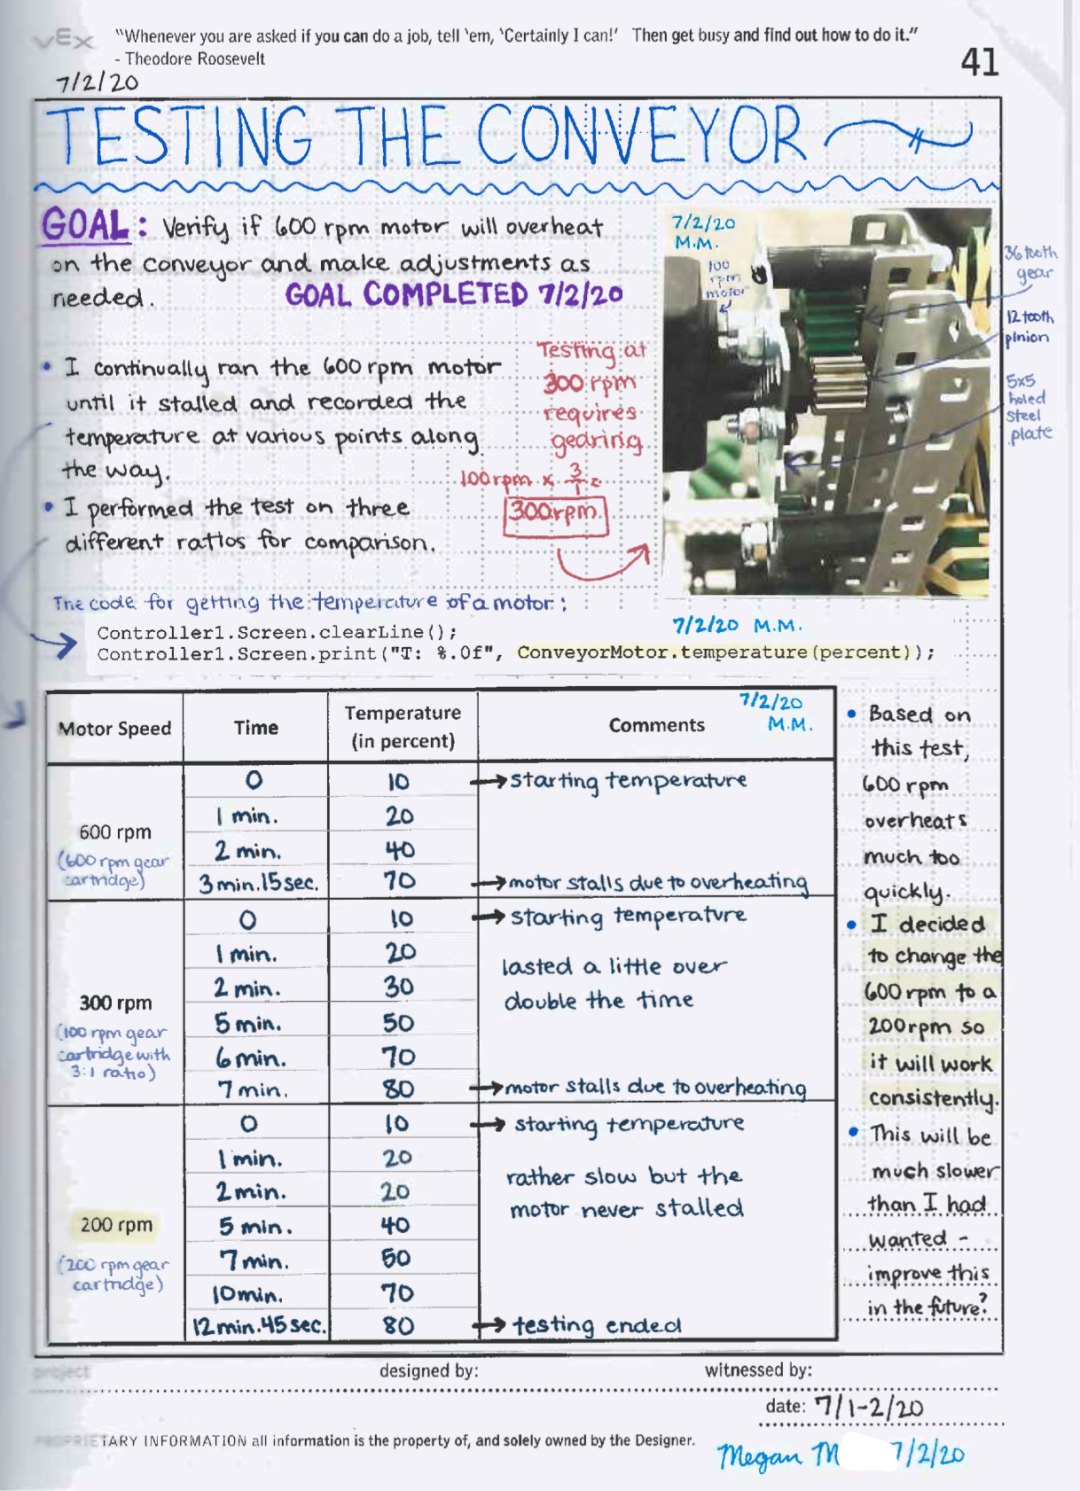 VEX
"Whenever you are asked if you can do a job, tell 'em, 'Certainly I can!' Then get busy and find out how to do it."
- Theodore Roosevelt
41
7/2/20
TESTING THE CONVEYOR
GOAL: Verify if 600 rpm motor will overheat
on the conveyor and make adjustments as
needed. GOAL COMPLETED 7/2/20
• I continually ran the 600 rpm motor
until it stalled and recorded the
temperature at various points along
the way.
• I performed the test on three
different ratios for comparison.
Testing at
300 rpm
requires
gearing
100rpm x 3/1 =
300rpm
7/2/20
M.M.
100
rpm
motor
36 tooth
gear
12 tooth
pinion
5x5
holed
steel
plate
The code for getting the temperature of a motor:
7/2/20 M.M.
Controller1.Screen.clearLine();
Controller1.Screen.print("T: %.0f", ConveyorMotor.temperature(percent));
Motor Speed Time Temperature (in percent) Comments 7/2/20 M.M.
600 rpm
(600 rpm gear
cartridge)
0 10 → starting temperature
1 min. 20
2 min. 40
3 min. 15 sec. 70 → motor stalls due to overheating
300 rpm
(100 rpm gear
cartridge with
3:1 ratio)
0 10 → starting temperature
1 min. 20 lasted a little over
2 min. 30 double the time
5 min. 50
6 min. 70
7 min. 80 → motor stalls due to overheating
200 rpm
(200 rpm gear
cartridge)
0 10 → starting temperature
1 min. 20 rather slow but the
2 min. 20 motor never stalled
5 min. 40
7 min. 50
10 min. 70
12 min. 45 sec. 80 → testing ended
• Based on
this test,
600 rpm
overheats
much too
quickly.
• I decided
to change the
600 rpm to a
200 rpm so
it will work
consistently.
• This will be
much slower
than I had
wanted -
improve this
in the future?
project designed by: witnessed by:
date: 7/1-2/20
PROPRIETARY INFORMATION all information is the property of, and solely owned by the Designer.
Megan M 7/2/20